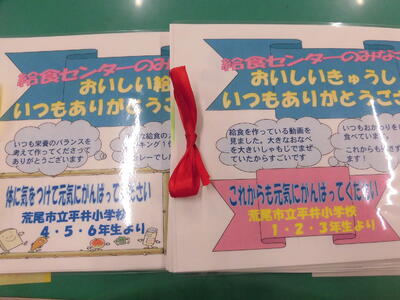 給食センターのみ
おいしい給
いつもありがとうご
いつも栄養のバランスを
考えて作ってくださって
ありがとうございます
体に気をつけて元気にがんばって
さい
荒尾市立平井小学校
4・5・6年生より
給食センターのみな
おいしいきゅうし
いつもありがとうござ
給食を作っている動画を
見ました。大きなおなべ
を大きいしゃもじでまぜ
ていたからすごいです
いつもおかわりを
食べています。
これからも
これからも元気にがんばってください
荒尾市立平井小学校
1・2・3年生より